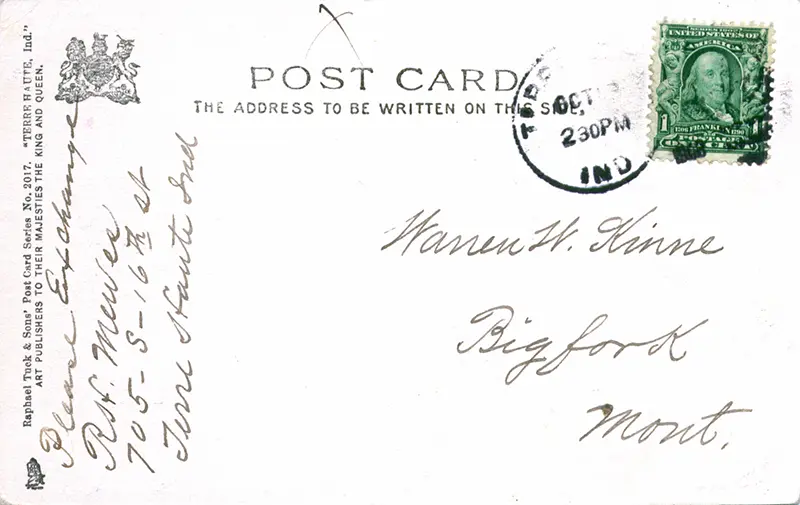 POST CARD
THE ADDRESS TO BE WRITTEN ON THIS SIDE.
Raphael Tuck & Sons' Post Card Series No. 2017. "TERRE HAUTE, Ind."
ART PUBLISHERS TO THEIR MAJESTIES THE KING AND QUEEN.
Please Exchange
705-S-16th St
Terre Haute Ind
OCT
230PM
IND
SERIES 1902
UNITED STATES OF
AMERICA
1706 FRANKLIN 1790
POSTAGE
1 ONE CENT
Warren W. Kinne
Bigfork
Mont.